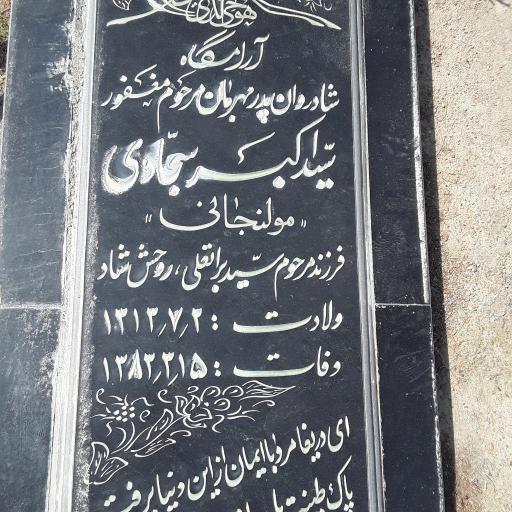 هو الحی الذی
آرامگاه
شادروان پدر مهربان مرحوم مغفور
سید اکبر سجادی
"مولنجانی"
فرزند مرحوم سید براتقلی، روحش شاد
ولادت : ۱۳۱۲٫۷٫۲
وفات : ۱۳۸۳٫۳٫۱۵
ای دریغا مرد با ایمان از این دنیا برفت
پاک طینت